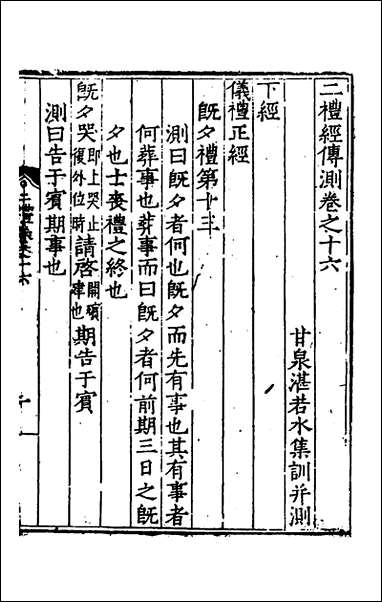 二禮經傳測卷之十六
甘泉湛若水集訓并測
下經
儀禮正經
旣夕禮第十三
測曰旣夕者何也旣夕而先有事也其有事者
何葬事也葬事而曰旣夕者何前期三日之旣
夕也士喪禮之終也
旣夕哭即上哭止復外位時請啓開殯期告于賓
測曰告于賓期事也